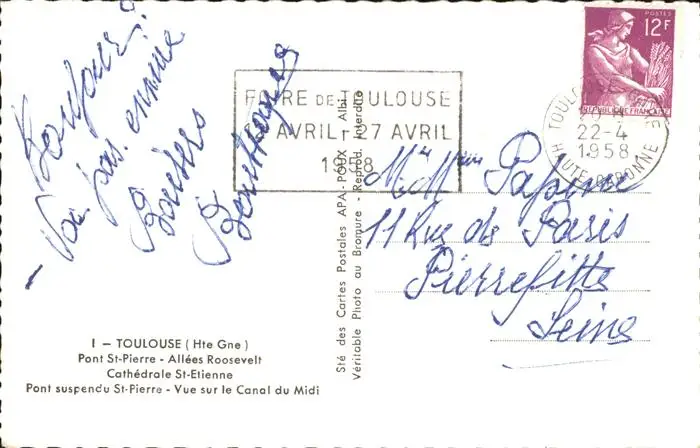 Bonjour!
- Vais pas ennui
Baisers
POSTES
12F
REPUBLIQUE FRANÇAISE
TOULOUSE
22-4
1958
HAUTE-GARONNE
FOIRE DE TOULOUSE
AVRIL - 27 AVRIL
1958
Papine
11 Rue de Paris
Pierrefitte
Seine
Sté des Cartes Postales APA-POUX - Albi
Véritable Photo au Bromure - Reprod. Interdite
I — TOULOUSE (Hte Gne)
Pont St-Pierre - Allées Roosevelt
Cathédrale St-Etienne
Pont suspendu St-Pierre - Vue sur le Canal du Midi